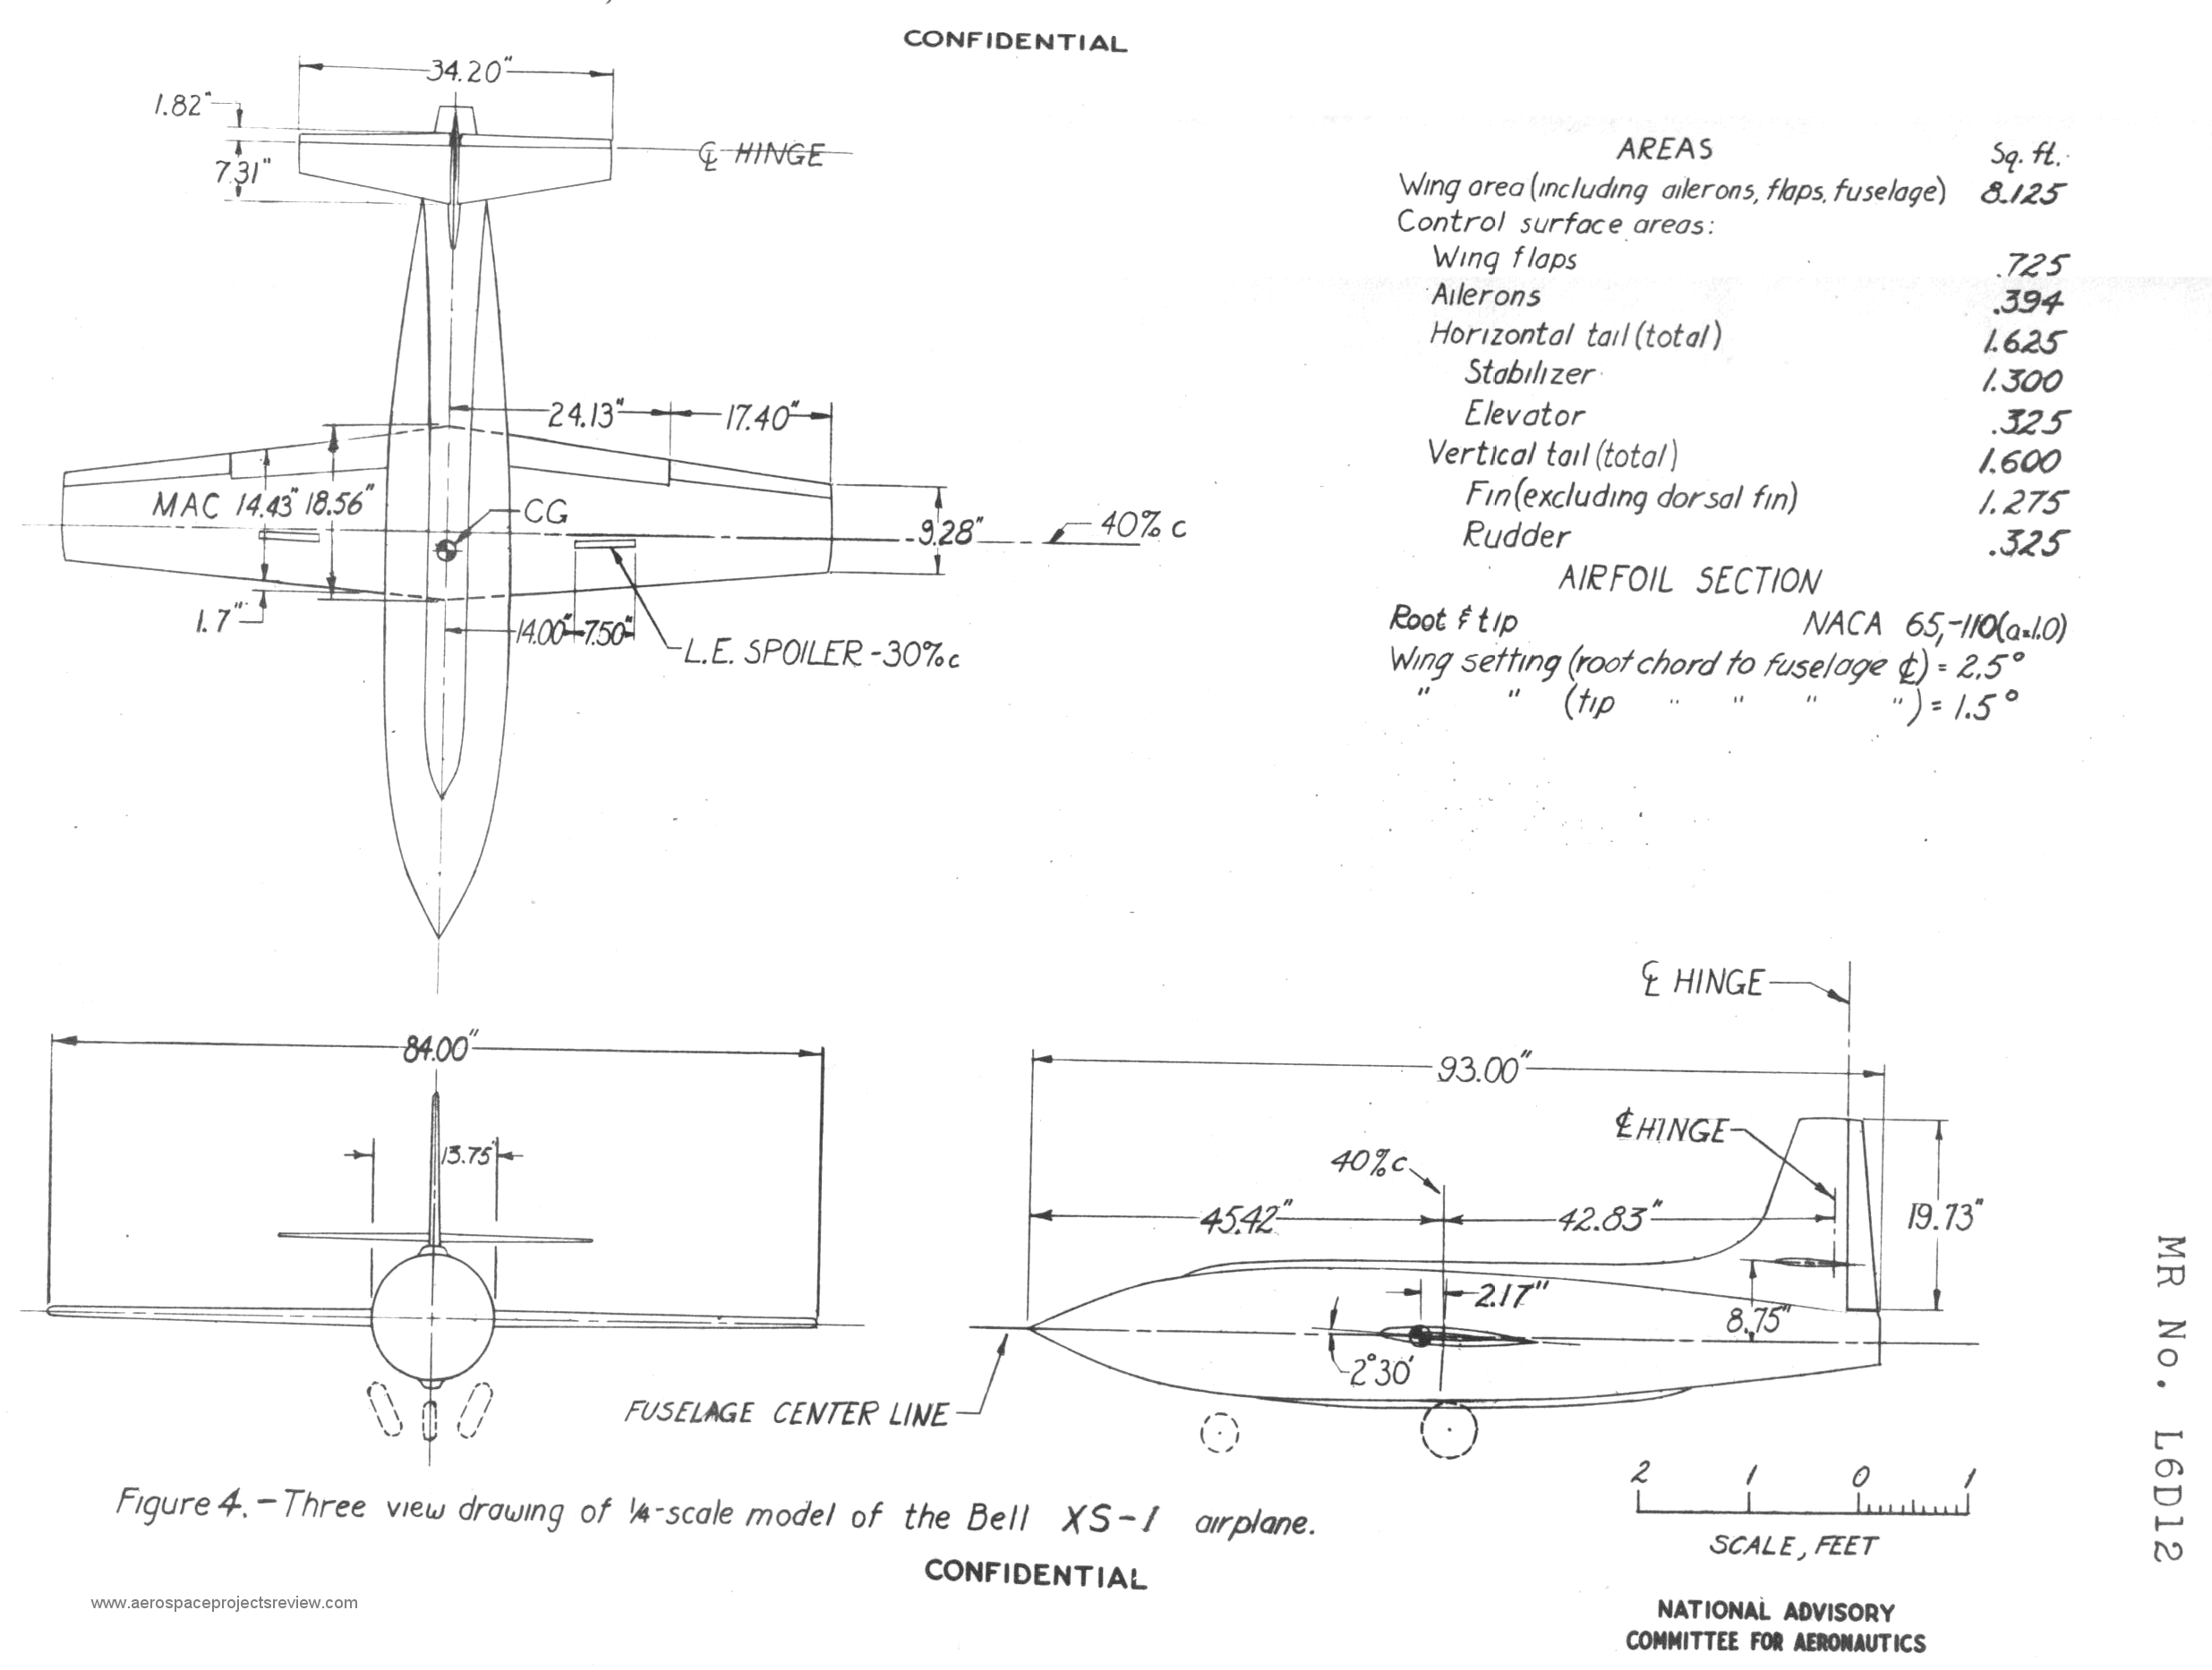 CONFIDENTIAL
34.20"
1.82"
7.31"
℄ HINGE
24.13"
17.40"
MAC 14.43" 18.56"
CG
9.28"
40% c
1.7"
14.00"
7.50"
L.E. SPOILER -30%c
AREAS Sq. ft.
Wing area (including ailerons, flaps, fuselage) 8.125
Control surface areas:
Wing flaps .725
Ailerons .394
Horizontal tail (total) 1.625
Stabilizer 1.300
Elevator .325
Vertical tail (total) 1.600
Fin (excluding dorsal fin) 1.275
Rudder .325
AIRFOIL SECTION
Root & tip NACA 65,-110(a=1.0)
Wing setting (root chord to fuselage ℄) = 2.5°
" " (tip " " " ") = 1.5°
84.00"
13.75"
℄ HINGE
93.00"
℄ HINGE
40%c
45.42"
42.83"
19.73"
2.17"
8.75"
2°30'
FUSELAGE CENTER LINE
2 1 0 1
SCALE, FEET
Figure 4. - Three view drawing of ¼-scale model of the Bell XS-1 airplane.
CONFIDENTIAL
www.aerospaceprojectsreview.com
NATIONAL ADVISORY
COMMITTEE FOR AERONAUTICS
MR No. L6D12